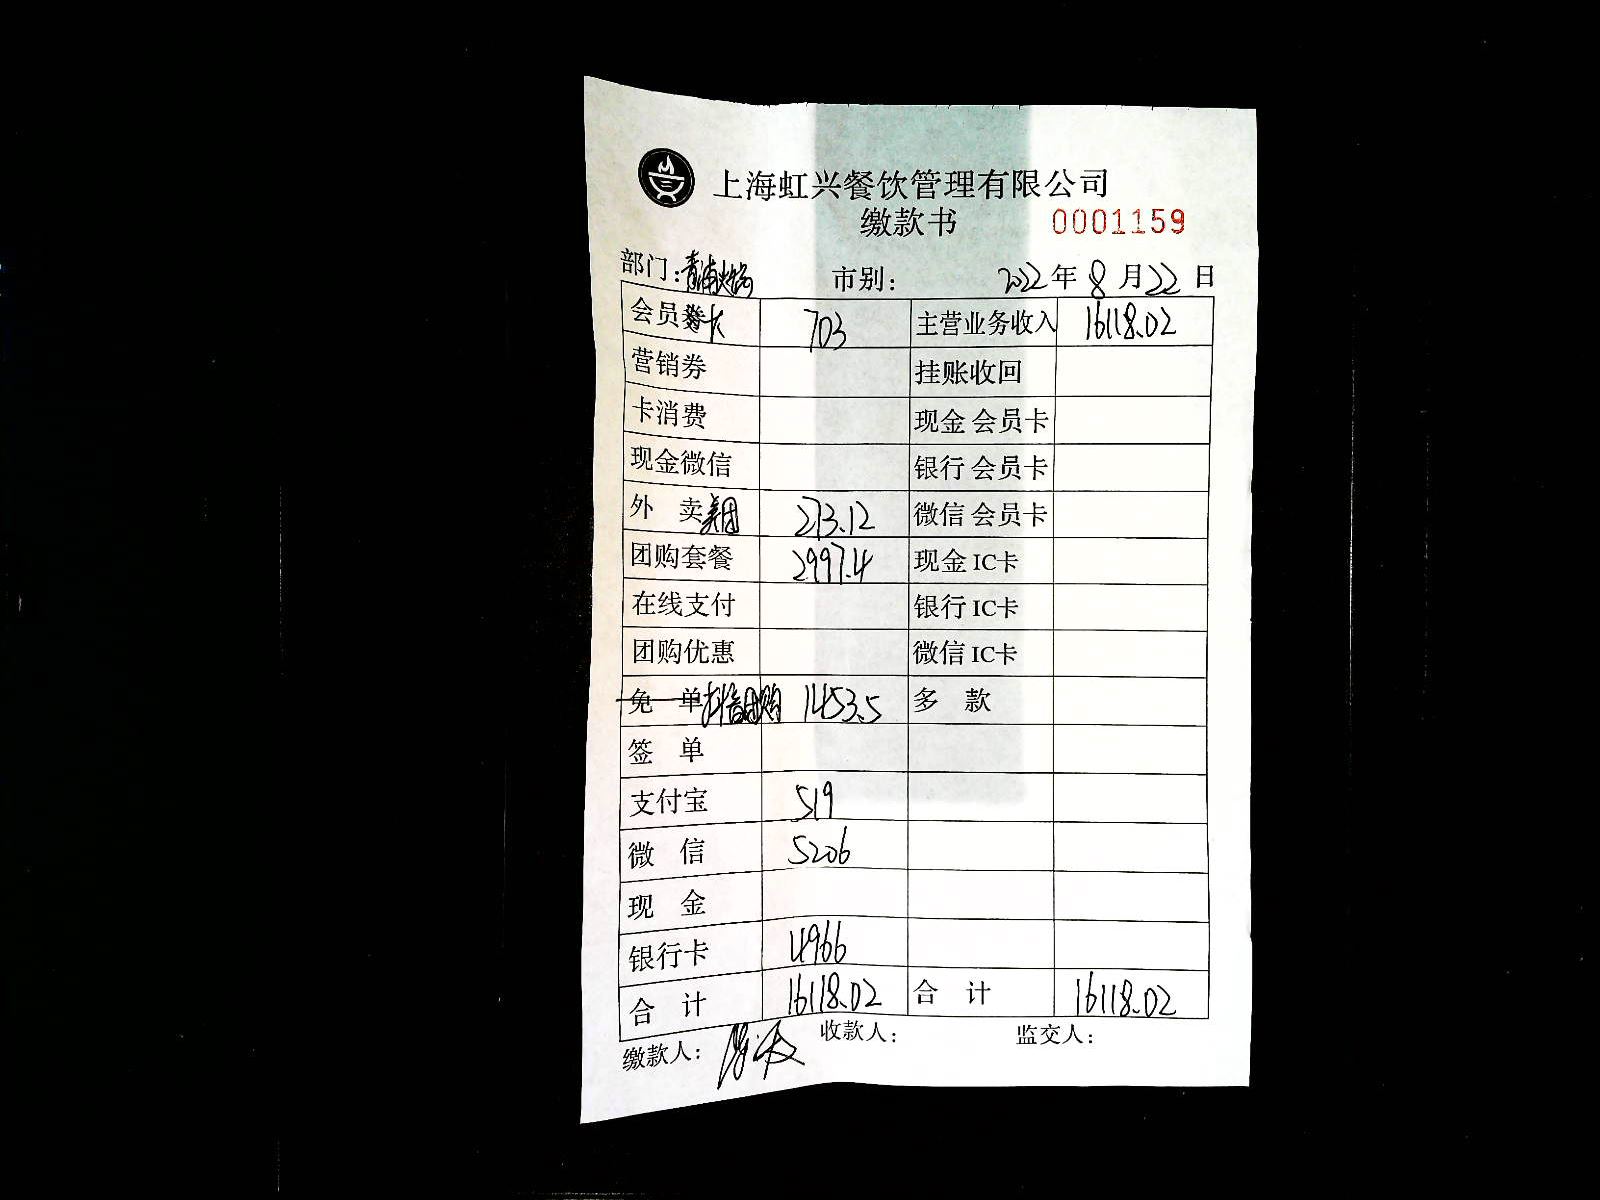 上海虹兴餐饮管理有限公司
缴款书 0001159
部门:青浦火锅 市别: 2022年8月22日
会员卡 703 主营业务收入 16118.02
营销券 挂账收回
卡消费 现金 会员卡
现金微信 银行 会员卡
外 卖 美团 273.12 微信 会员卡
团购套餐 2997.4 现金 IC卡
在线支付 银行 IC卡
团购优惠 微信 IC卡
免 单 抖音团购 1453.5 多 款
签 单
支付宝 519
微 信 5206
现 金
银行卡 4966
合 计 16118.02 合 计 16118.02
缴款人: 收款人: 监交人: